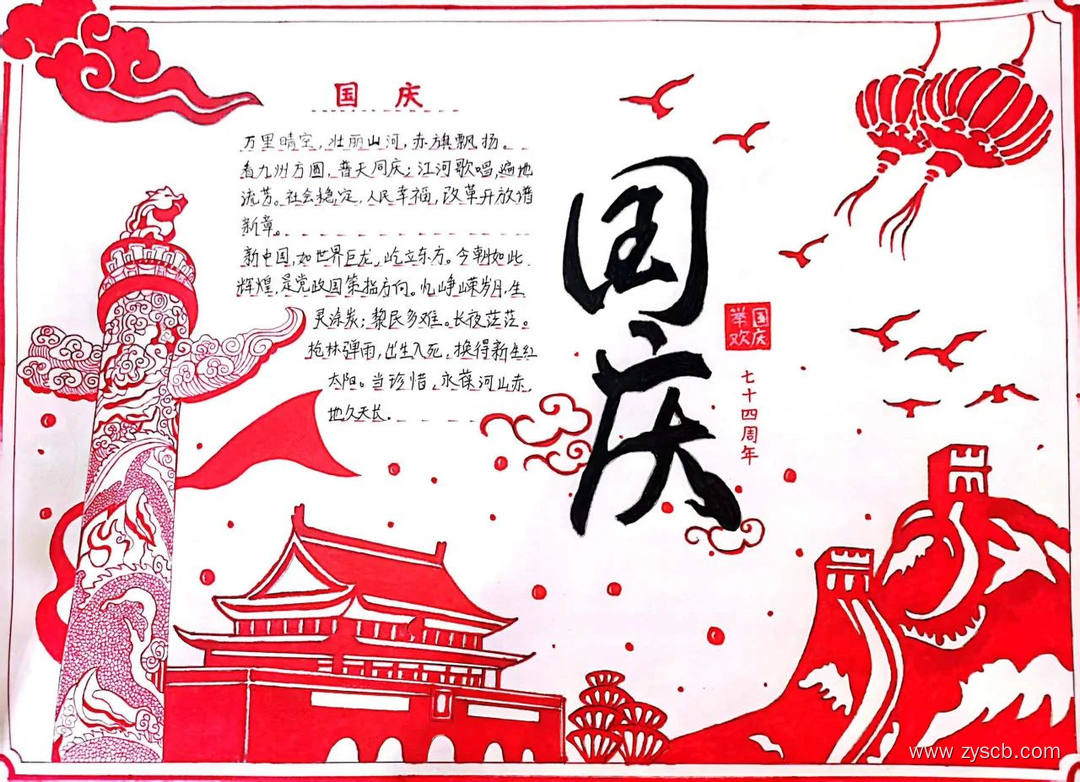 国 庆
万里晴空，壮丽山河，赤旗飘扬。
看九州方圆，普天同庆；江河歌唱，遍地
流芳。社会稳定，人民幸福，改革开放谱
新章。
新中国，如世界巨龙，屹立东方。今朝如此
辉煌，是党政国策指方向。忆峥嵘岁月，生
灵涂炭；黎民多难。长夜茫茫。
抢林弹雨，出生入死。换得新生红
太阳。当珍惜，永葆河山赤，
地久天长。
国庆
国庆
举欢
七十四周年
www.zyscb.com